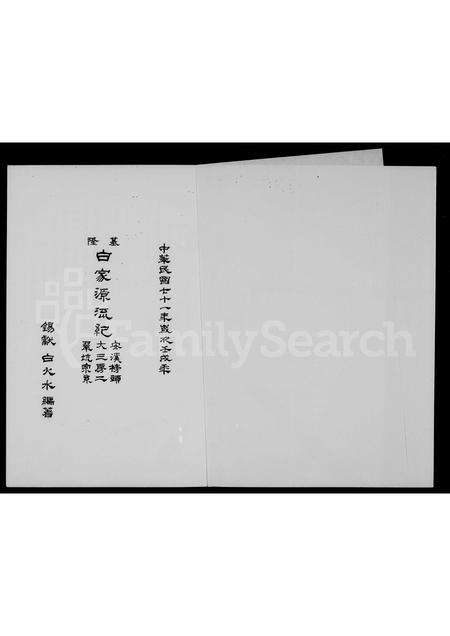 中華民國七十一年歲次壬戌年
基隆
白家源流紀
安溪榜頭
大三房二
坑宗系
白火水編著
FamilySearch